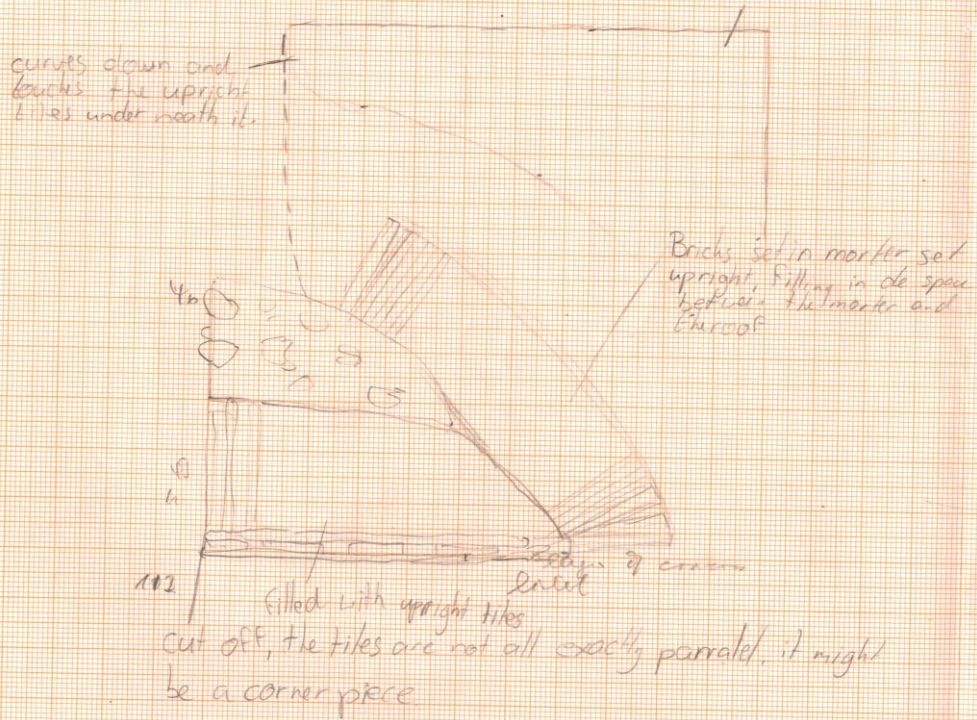 curves down and
touches the upright
tiles under neath it.
Bricks set in morter set
upright, filling in de space
between the morter and
the roof
112
level
filled with upright tiles
cut off, the tiles are not all exactly parralel, it might
be a corner piece